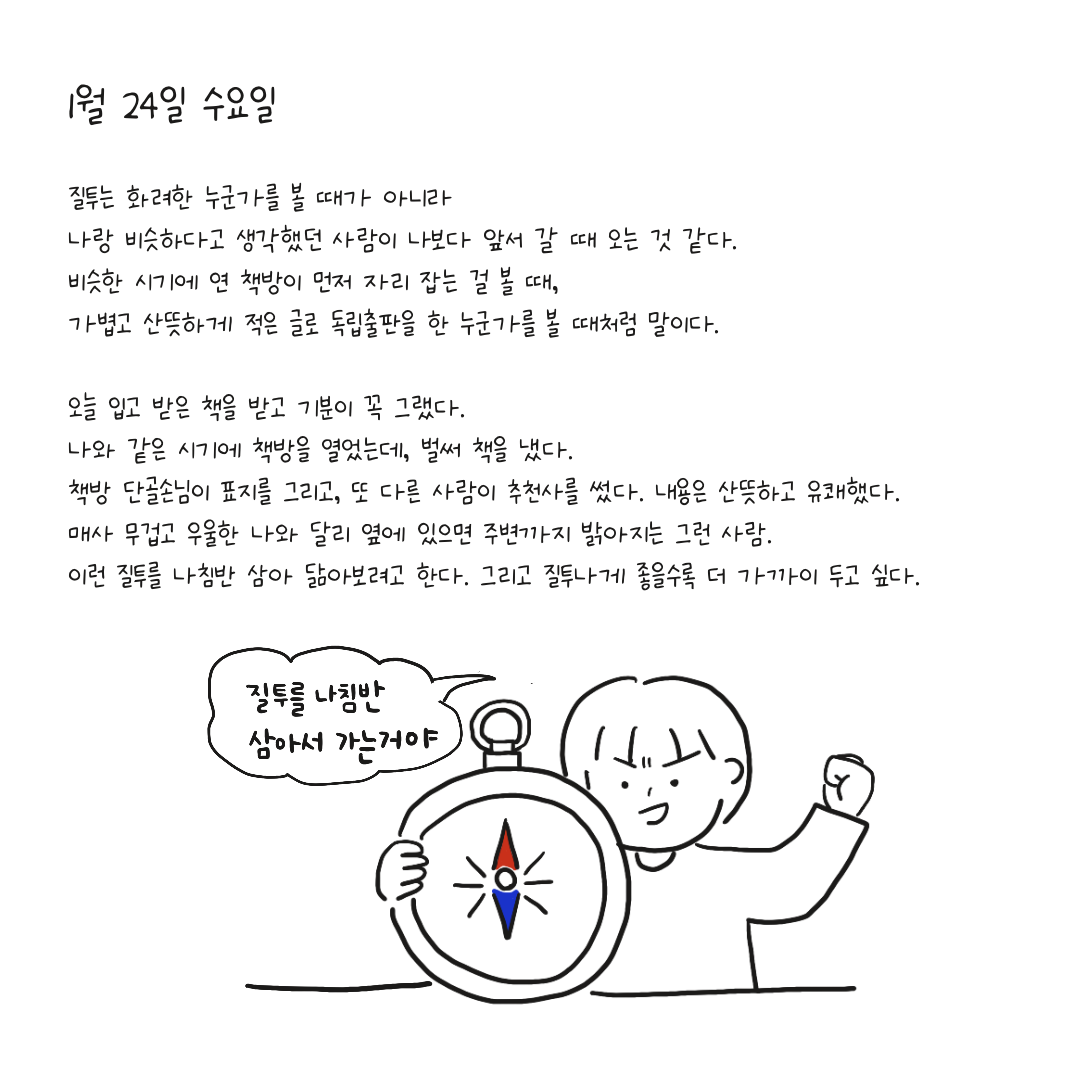 1월 24일 수요일
질투는 화려한 누군가를 볼 때가 아니라
나랑 비슷하다고 생각했던 사람이 나보다 앞서 갈 때 오는 것 같다.
비슷한 시기에 연 책방이 먼저 자리 잡는 걸 볼 때,
가볍고 산뜻하게 적은 글로 독립출판을 한 누군가를 볼 때처럼 말이다.
오늘 입고 받은 책을 받고 기분이 꼭 그랬다.
나와 같은 시기에 책방을 열었는데, 벌써 책을 냈다.
책방 단골손님이 표지를 그리고, 또 다른 사람이 추천사를 썼다. 내용은 산뜻하고 유쾌했다.
매사 무겁고 우울한 나와 달리 옆에 있으면 주변까지 밝아지는 그런 사람.
이런 질투를 나침반 삼아 닮아보려고 한다. 그리고 질투나게 좋을수록 더 가까이 두고 싶다.
질투를 나침반
삼아서 가는거야